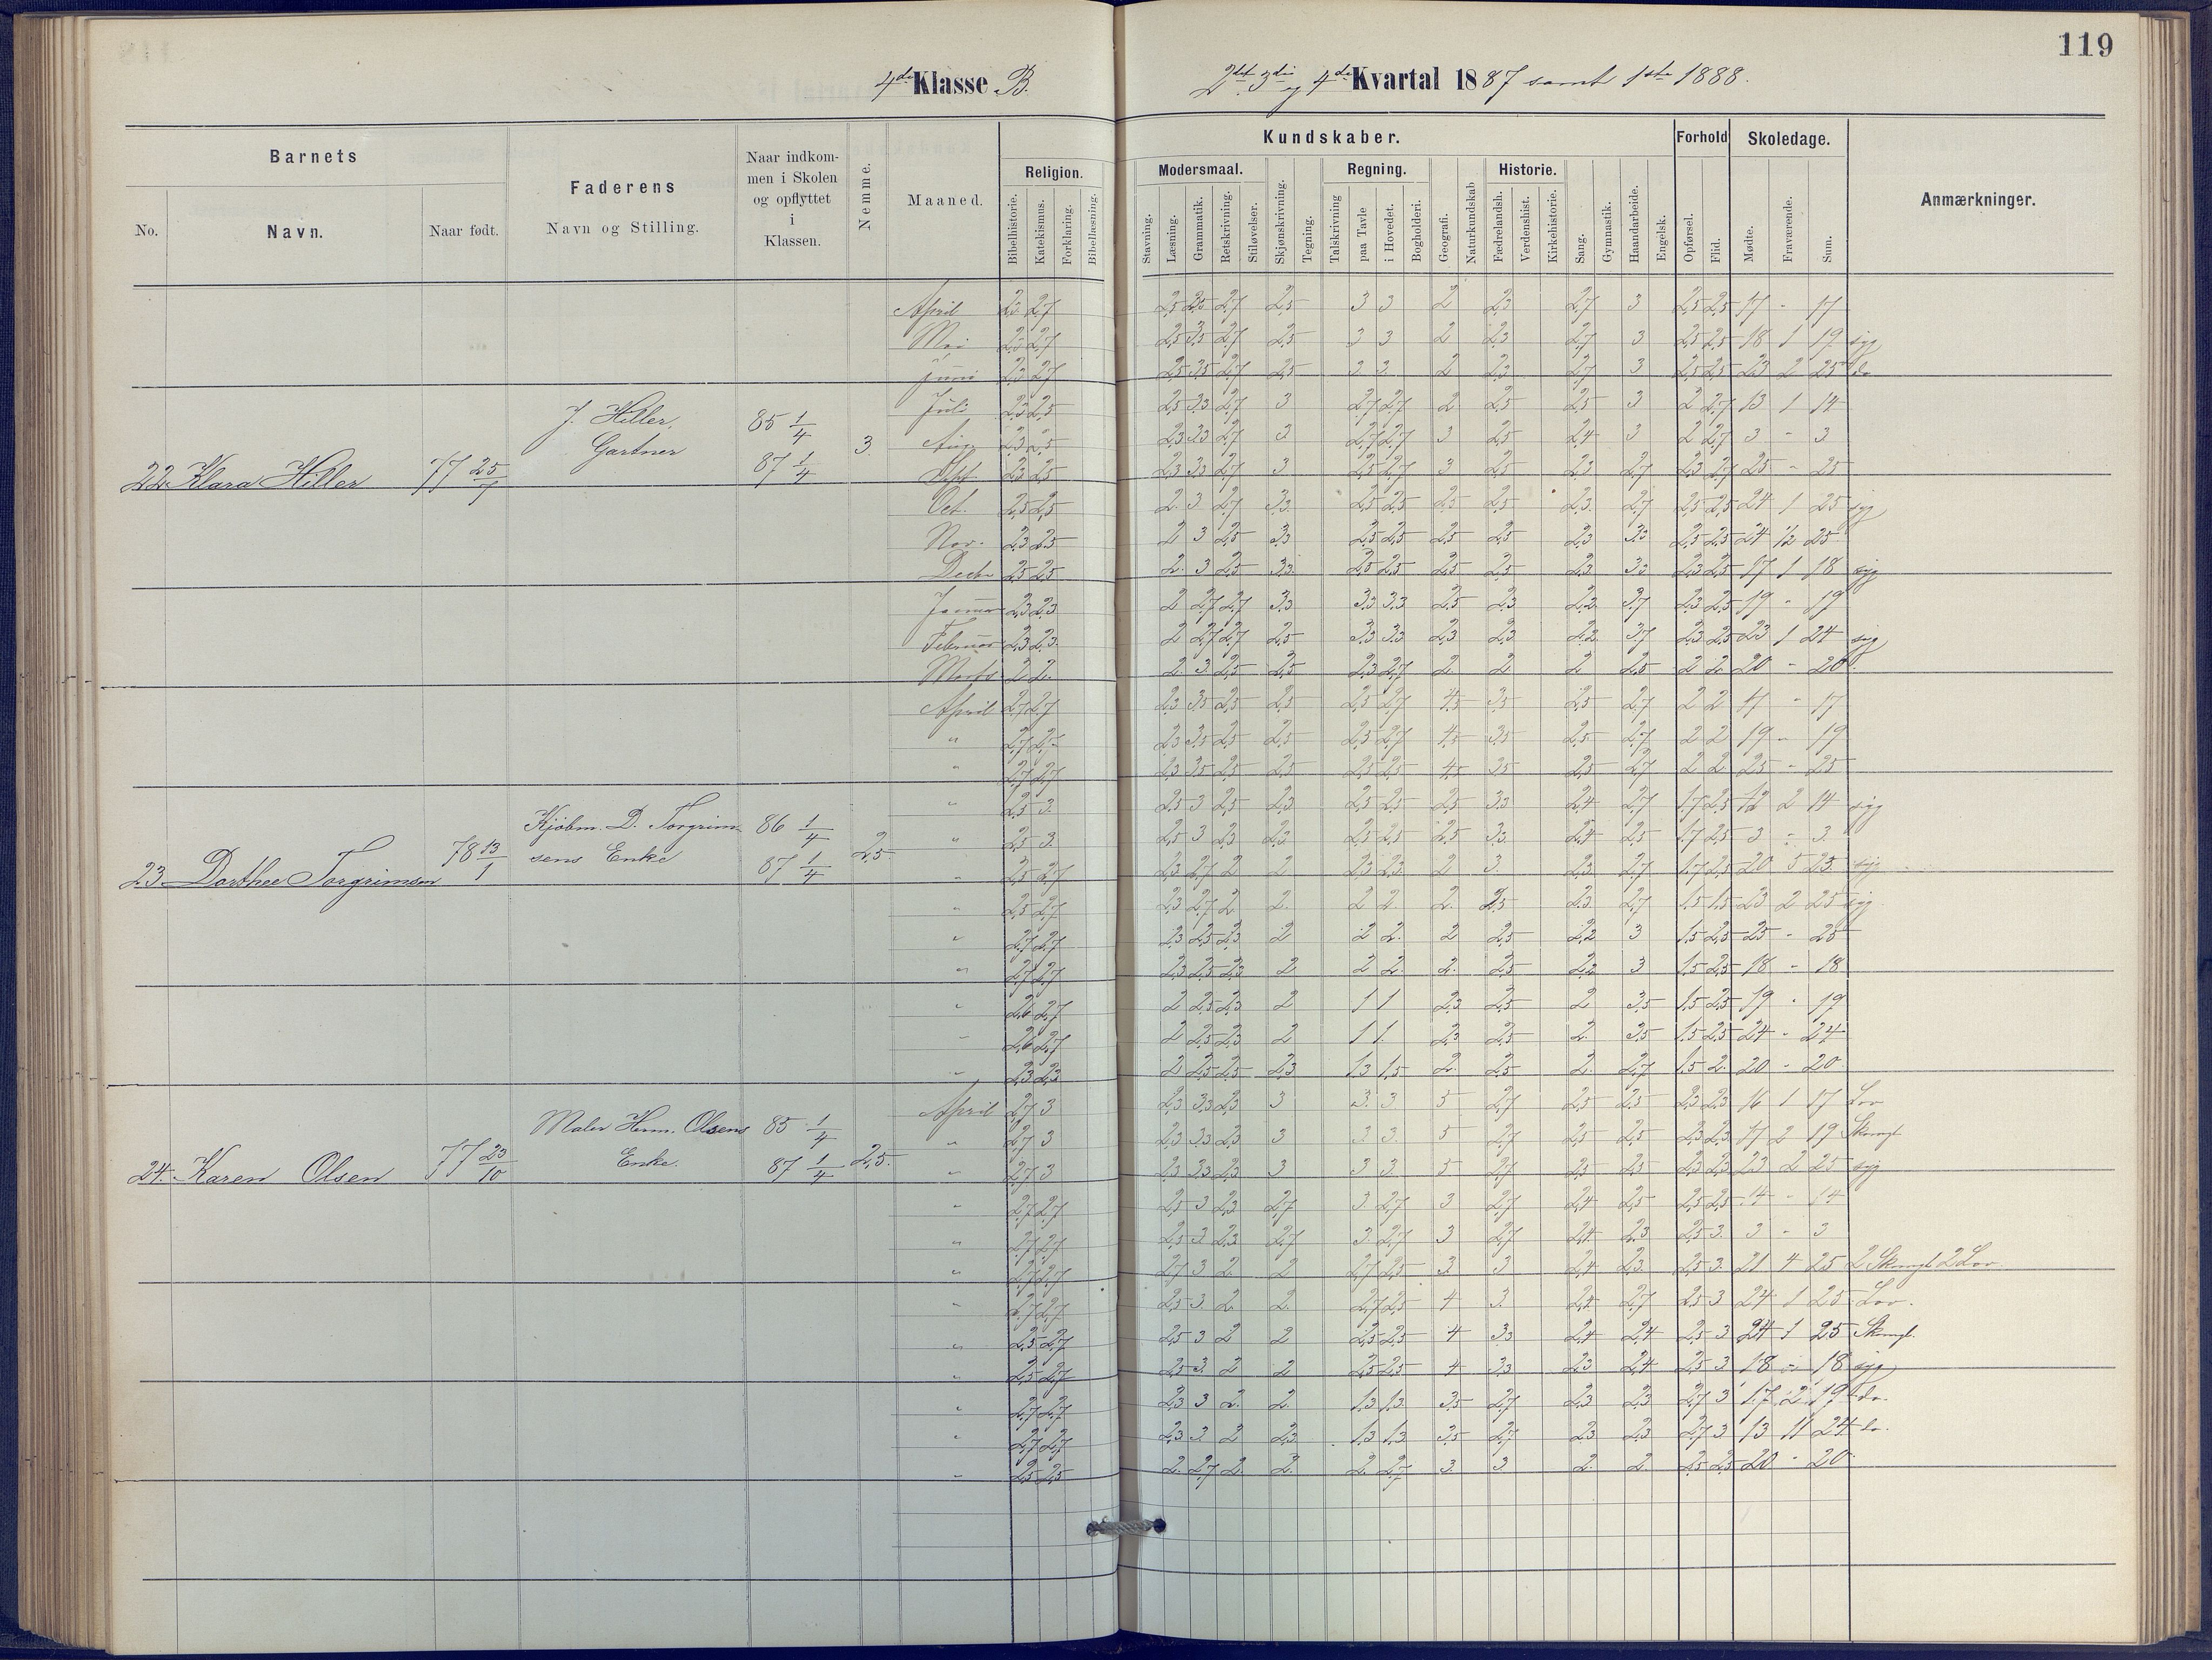 119
4de Klasse B.
2det 3die og 4de Kvartal 1887 samt 1ste 1888.
Barnets
No.
Navn.
Naar født.
Faderens
Navn og Stilling.
Naar indkom-
men i Skolen
og opflyttet
i
Klassen.
Nemme.
Maaned.
Kundskaber.
Religion.
Bibelhistorie.
Katekismus.
Forklaring.
Bibellæsning.
Modersmaal.
Stavning.
Læsning.
Grammatik.
Retskrivning.
Stiløvelser.
Skjønskrivning.
Tegning.
Regning.
Talskrivning
paa Tavle
i Hovedet.
Bogholderi.
Geografi.
Naturkundskab
Historie.
Fædrelandsh.
Verdenshist.
Kirkehistorie.
Sang.
Gymnastik.
Haandarbeide.
Engelsk.
Forhold
Opførsel.
Flid.
Skoledage.
Mødte.
Fraværende.
Sum.
Anmærkninger.
22 Klara Hiller 77 25/7 J. Hiller, Gartner 85 1/4 87 1/4 3.
April 2,7 2,5 2,5 2,7 2,5 3 3 2 2,3 2,7 3 2,5 2,5 17 - 17
Mai 2,3 2,7 2,5 3,5 2,7 2,5 3 3 2 2,3 2,7 3 2,5 2,5 18 1 19 syg
Juni 2,3 2,7 2,5 3,5 2,7 2,5 3 3 2 2,3 2,7 3 2,5 2,5 23 2 25 do
Juli 2,3 2,5 2,5 3,3 2,7 3 2,7 2,7 2 2,5 2,5 3 2 2,7 13 1 14
Aug 2,3 2,5 2,3 3,3 2,7 3 2,7 2,7 3 2,5 2,4 3 2 2,7 3 - 3
Sept 2,3 2,5 2,3 3,3 2,7 3 2,5 2,7 3 2,5 2,3 2,7 2,3 2,7 25 - 25
Oct. 2,3 2,5 2 3 2,7 3,3 2,5 2,5 2,5 2,5 2,3 2,7 2,5 2,5 24 1 25 syg
Nov. 2,3 2,5 2 3 2,5 3,3 2,5 2,5 2,5 2,5 2,3 3,3 2,5 2,5 24 1/2 25
Decbr 2,5 2,5 2 3 2,5 3,3 2,5 2,5 2,5 2,5 2,3 3,3 2,3 2,5 17 1 18 syg
Januar 2,3 2,3 2 2,7 2,7 3,3 3,3 3,3 2,5 2,3 2,3 3,7 2,3 2,5 19 - 19
Februar 2,3 2,3 2 2,7 2,7 2,5 3,3 3,3 2,3 2,3 2,2 3,7 2,3 2,5 23 1 24 syg
Marts 2 2 2 3 2,5 2,5 2,3 2,7 2 2 2 2,5 2 2 20 - 20
23 Dorthee Torgrimsen 78 13/1 Kjøbm. D. Torgrim-
sens Enke 86 1/4 87 1/4 2,5
April 2,7 2,7 2,3 3,5 2,5 2,5 2,5 2,7 4,5 3,5 2,5 2,7 2 2 17 - 17
" 2,7 2,7 2,3 3,5 2,5 2,5 2,5 2,7 4,5 3,5 2,5 2,7 2 2 19 - 19
" 2,7 2,7 2,3 3,5 2,5 2,5 2,5 2,5 4,5 3,5 2,5 2,7 2 2 25 - 25
" 2,5 3 2,5 3 2,5 2,3 2,5 2,5 2,5 3,3 2,4 2,7 1,7 2,5 12 2 14 syg
" 2,5 3 2,5 3 2,5 2,3 2,5 2,5 2,5 3,3 2,4 2,5 1,7 2,5 3 - 3
" 2,5 2,7 2,3 2,7 2 2 2,3 2,3 2 3 2,3 2,7 1,7 2,5 20 5 25 syg
" 2,5 2,7 2,3 2,7 2 2 2 2 2 2,5 2,3 2,7 1,5 1,5 23 2 25 syg
" 2,7 2,7 2,3 2,5 2,3 2 2 2 2 2,5 2,2 3 1,5 2,5 25 - 25
" 2,7 2,7 2,3 2,5 2,3 2 2 2 2 2,5 2,2 3 1,5 2,5 18 - 18
" 2,6 2,7 2 2,5 2,3 2 1 1 2,3 2,5 2 3,5 1,5 2,5 19 - 19
" 2,6 2,7 2 2,5 2,3 2 1 1 2,3 2,5 2 3,5 1,5 2,5 24 - 24
" 2,3 2,3 2 2,5 2,5 2,3 1,3 1,5 2 2,5 2 2,7 1,5 2 20 - 20
24. Karen Olsen 77 23/10 Maler Herm. Olsens
Enke. 85 1/4 87 1/4 2,5.
April 2,7 3 2,3 3,3 2,3 3 3 3 5 2,7 2,5 2,5 2,3 2,3 16 1 17 Lov
" 2,7 3 2,3 3,3 2,3 3 3 3 5 2,7 2,5 2,5 2,3 2,3 17 2 19 Skomgl
" 2,7 3 2,3 3,3 2,3 3 3 3 5 2,7 2,5 2,5 2,3 2,3 23 2 25 syg
" 2,7 2,7 2,5 3 2,3 2,7 3 2,7 3 2,7 2,4 2,5 2,5 2,5 14 - 14
" 2,7 2,7 2,5 3 2,3 2,7 3 2,7 3 2,7 2,4 2,3 2,5 3 3 - 3
" 2,7 2,7 2,7 3 2 2 2,7 2,5 3 3 2,4 2,3 2,5 3 21 4 25 2 Skomgl 2 Lov
" 2,7 2,7 2,5 3 2 2 2,7 2,5 4 3 2,4 2,7 2,5 3 24 1 25 Lov.
" 2,5 2,7 2,5 3 2 2 2,5 2,5 4 3,3 2,4 2,4 2,5 3 24 1 25 Skomgl.
" 2,5 2,7 2,5 3 2 2 2,5 2,5 4 3,3 2,3 2,4 2,5 3 18 - 18 syg
" 2,7 2,7 2,3 3 2 2 1,3 1,3 3,5 2,7 2,3 2,3 2,7 3 17 2 19 do.
" 2,7 2,7 2,3 3 2 2,3 1,3 1,3 3,5 2,7 2,3 2,3 2,7 3 13 11 24 do.
" 2,5 2,5 2 2,7 2 2 2 2,7 3 3 2 2 2,5 2,5 20 - 20